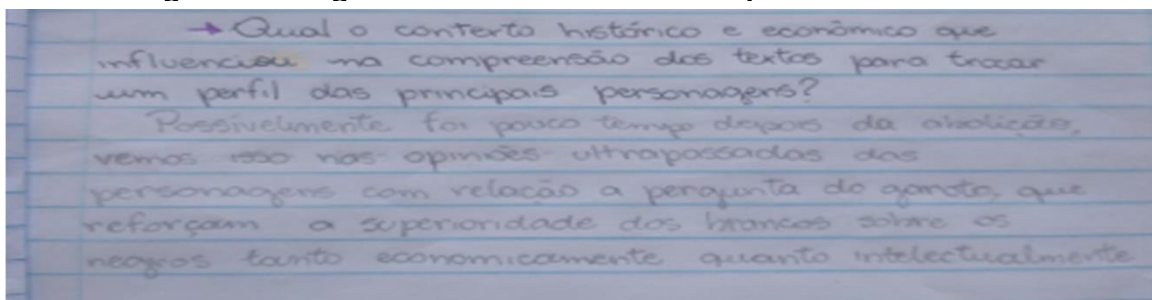 → Qual o contexto histórico e econômico que
influenciou na compreensão dos textos para traçar
um perfil das principais personagens?
Possivelmente foi pouco tempo depois da abolição,
vemos isso nas opiniões ultrapassadas das
personagens com relação a pergunta do garoto, que
reforçam a superioridade dos brancos sobre os
negros tanto economicamente quanto intelectualmente